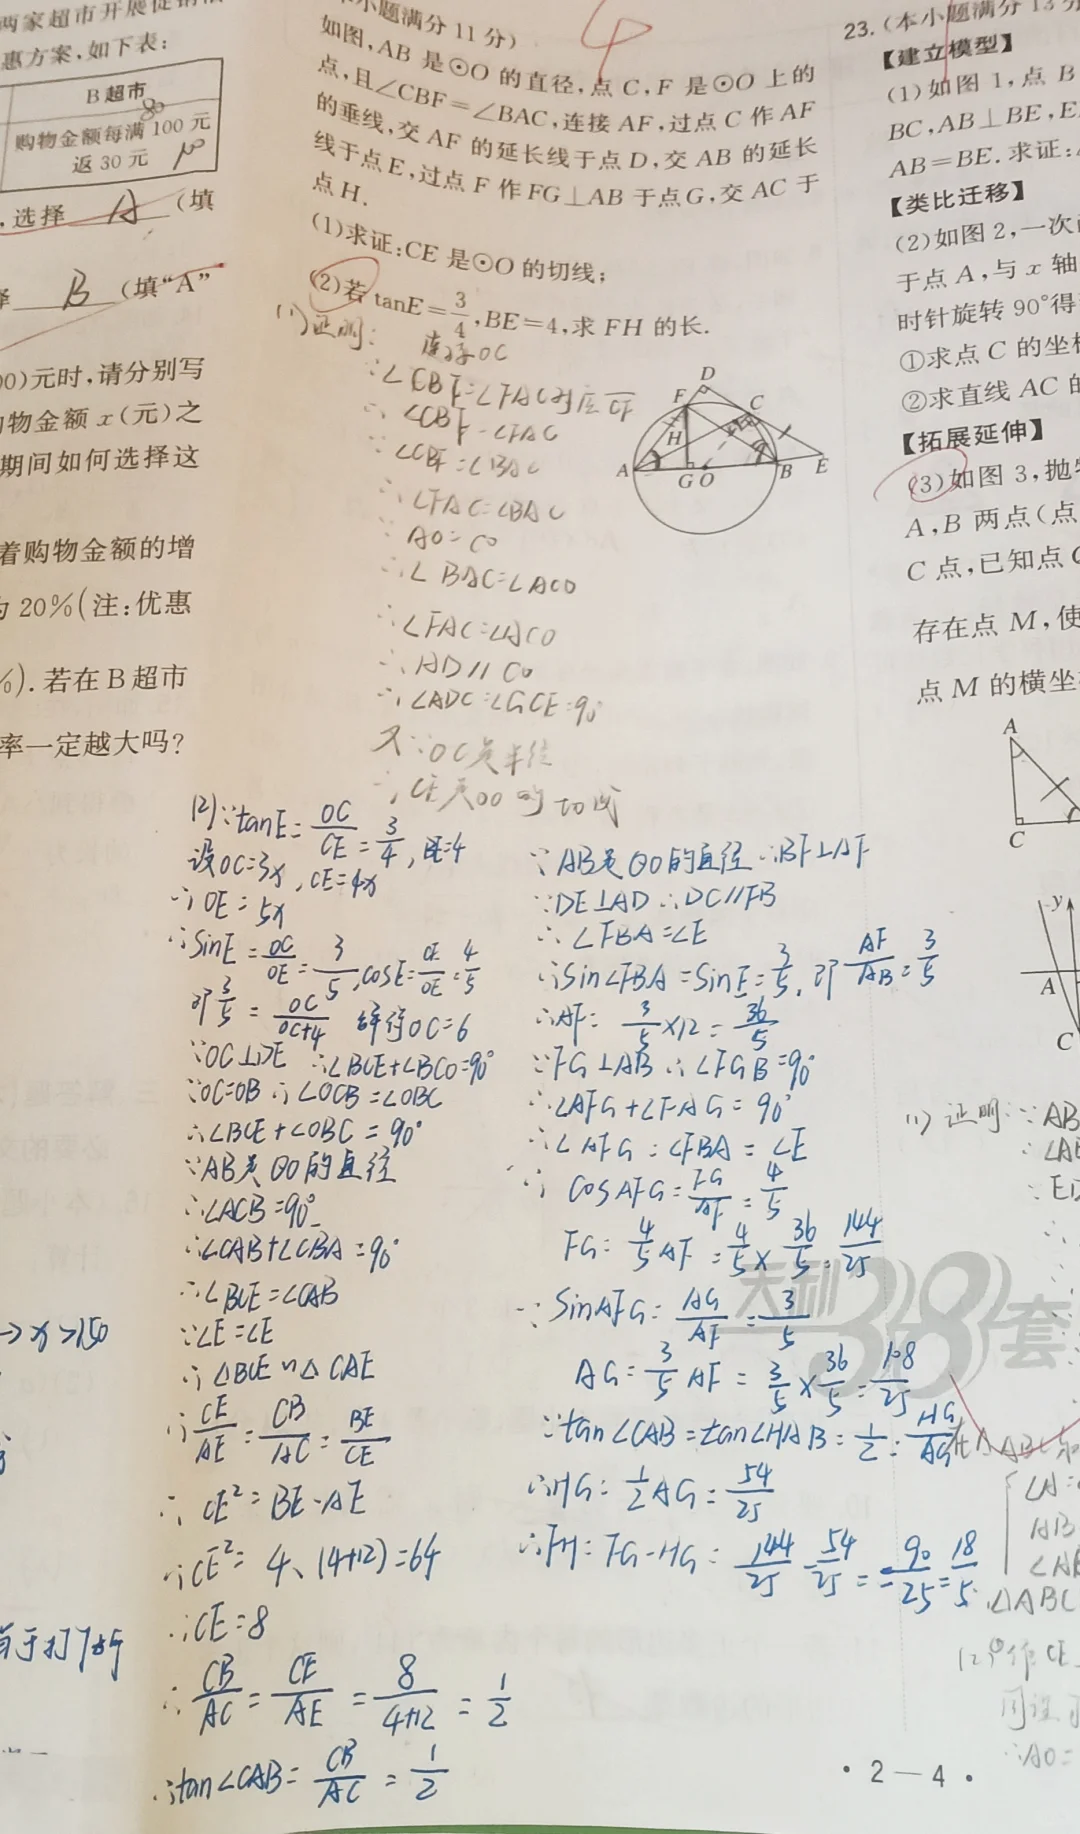 两家超市开展促销
惠方案,如下表:
B超市
80
购物金额每满100元
返30元
,选择 A (填
择 B (填“A”
00)元时,请分别写
物金额x(元)之
期间如何选择这
着购物金额的增
为20%(注:优惠
%).若在B超市
率一定越大吗?
→x>150
小题满分11分)
4
如图,AB是⊙O的直径,点C,F是⊙O上的
点,且∠CBF=∠BAC,连接AF,过点C作AF
的垂线,交AF的延长线于点D,交AB的延长
线于点E,过点F作FG⊥AB于点G,交AC于
点H.
(1)求证:CE是⊙O的切线;
(2)若tanE=3/4,BE=4,求FH的长.
(1)证明: 连接OC
∵∠CBF=∠FAC对应CF
∴∠CBF=∠FAC
∵∠CBF=∠BAC
∴∠FAC=∠BAC
∵AO=CO
∴∠BAC=∠ACO
∴∠FAC=∠ACO
∴AD//CO
∴∠ADC=∠GCE=90°
又∵OC是半径
∴CE是⊙O的切线
D
F
C
H
A
G O
B
E
(2)∵tanE=OC/CE=3/4,BE=4
设OC=3x,CE=4x
∴OE=5x
∴sinE=OC/OE=3/5,cosE=CE/OE=4/5
即3/5=OC/OC+4 解得OC=6
∵OC⊥DE ∴∠BCE+∠BCO=90°
∵OC=OB∴∠OCB=∠OBC
∴∠BCE+∠OBC=90°
∵AB是⊙O的直径
∴∠ACB=90°
∴∠CAB+∠CBA=90°
∴∠BCE=∠CAB
∵∠E=∠E
∴△BCE∽△CAE
∴CE/AE=CB/AC=BE/CE
∴CE²=BE·AE
∴CE²=4×(4+12)=64
∴CE=8
∴CB/AC=CE/AE=8/4+12=1/2
∴tan∠CAB=CB/AC=1/2
∵AB是⊙O的直径∴BF⊥AF
∵DE⊥AD∴DC//FB
∴∠FBA=∠E
∴sin∠FBA=sinE=3/5,即AF/AB=3/5
∴AF=3/5×12=36/5
∵FG⊥AB∴∠FGB=90°
∴∠AFG+∠FAG=90°
∴∠AFG=∠FBA=∠E
∴cosAFG=FG/AF=4/5
FG=4/5AF=4/5×36/5=144/25
∵sinAFG=AG/AF=3/5
AG=3/5AF=3/5×36/5=108/25
∵tan∠CAB=tan∠HAB=1/2=HG/AG
∴HG=1/2AG=54/25
∴FH=FG-HG=144/25-54/25=90/25=18/5
天利38套
·2—4·
23.(本小题满分13分
【建立模型】
(1)如图1,点B
BC,AB⊥BE,E
AB=BE.求证:
【类比迁移】
(2)如图2,一次
于点A,与x轴
时针旋转90°得
①求点C的坐
②求直线AC的
【拓展延伸】
(3)如图3,抛
A,B两点(点
C点,已知点
存在点M,使
点M的横坐
A
C
y
A
C
(1)证明:∵AB
∠A
∵ED
∠A=
AB
∠AB
△ABC
(2)①作CE
同设
∴AO=